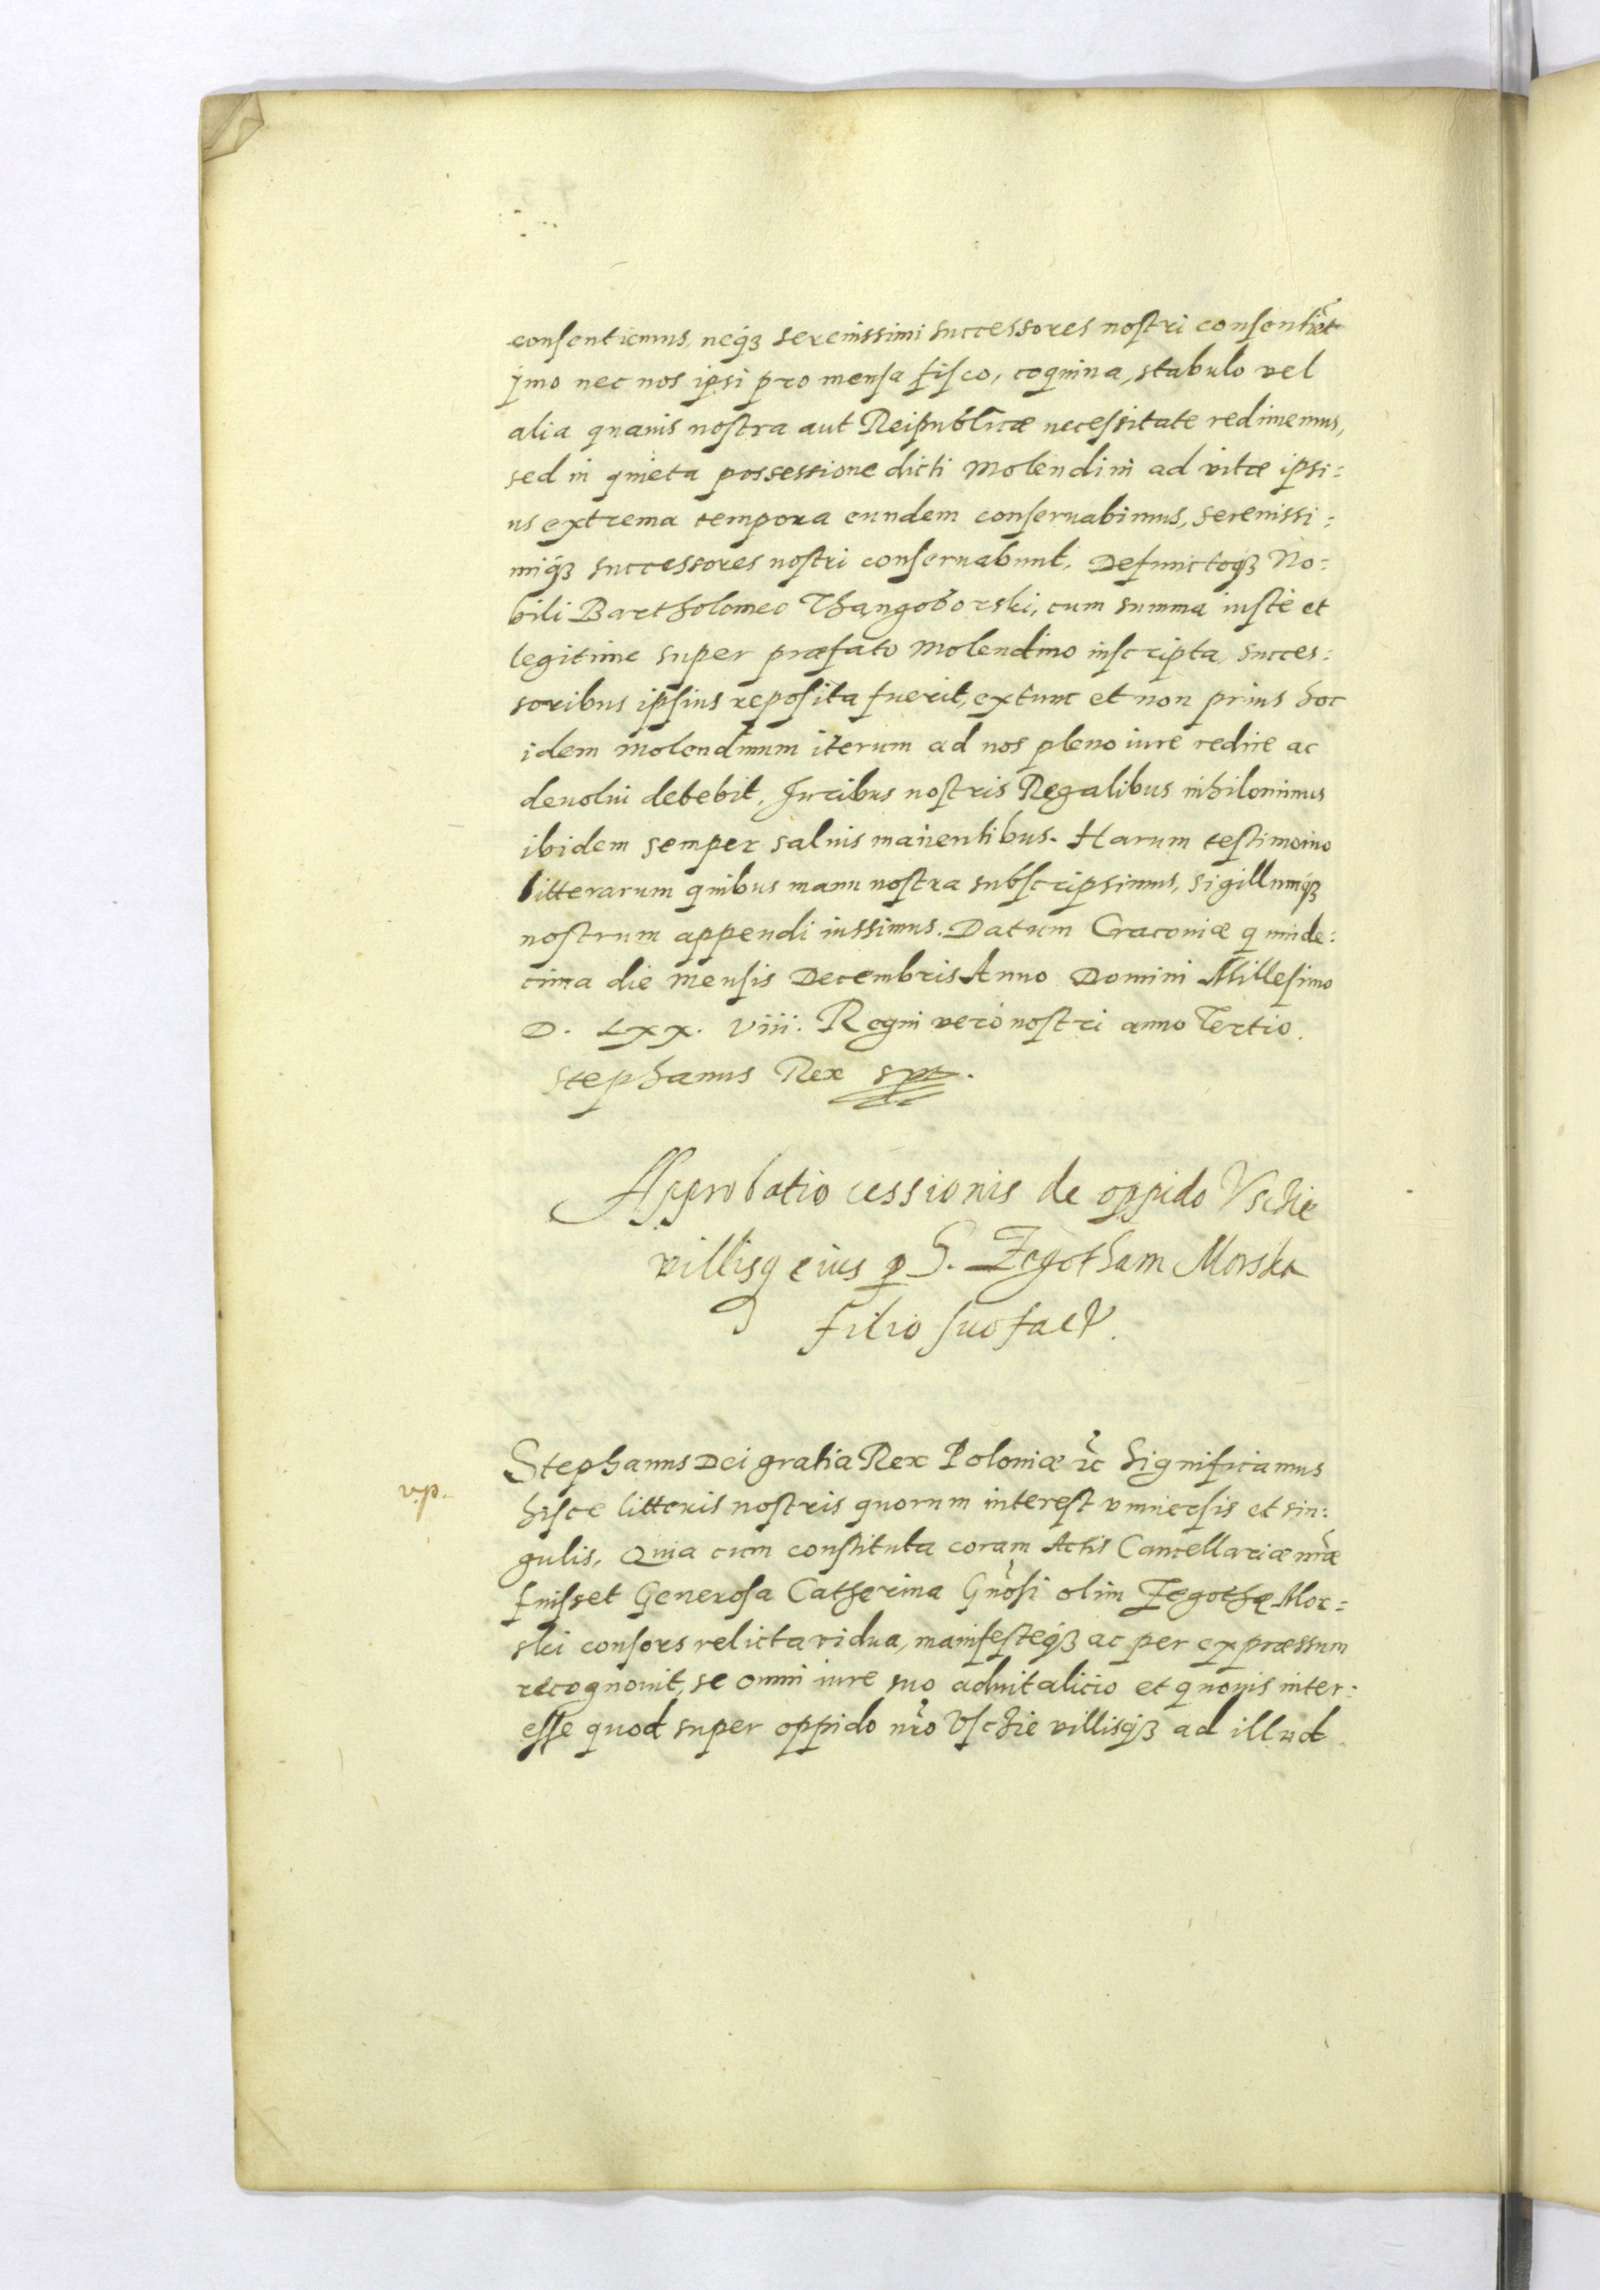 consentiemus, neq₃ serenissimi successores nostri consentiet
imo nec nos ipsi pro mensa fisco, coquina, stabulo vel
alia quauis nostra aut Reipublicæ necessitate redimemus,
sed in quieta possessione dicti Molendini ad vitæ ipsi:
us extrema tempora eundem conseruabimus, serenissi:
miq₃ successores nostri conseruabunt. Defunctoq₃ No:
bili Bartholomeo Thangoborski, cum summa iustè et
legitime super præfato Molendino inscripta, succes:
soribus ipsius reposita fuerit, extunc et non prius hoc
idem molendinum iterum ad nos pleno iure redire ac
deuolui debebit, Iuribus nostris Regalibus nihilominus
ibidem semper saluis manentibus. Harum testimonio
litterarum quibus manu nostra subscripsimus, sigillumq₃
nostrum appendi iussimus. Datum Cracouiæ quinde:
cima die mensis Decembris Anno Domini Millesimo
D. LXX. viii. Regni verò nostri anno Tertio.
Stephanus Rex sp̄t.
Approbatio cessionis de oppido Vschie
villisq eius ꝑ G. Zegotham Morska
filio suo fact.
Stephanus Dei gratia Rex Poloniæ ꝛc̃ Significamus
hisce litteris nostris quorum interest vniuersis et sin:
gulis, Quia cum constituta coram Actis Cancellariæ nr̃æ
fuisset Generosa Catherina Gn̄osi olim Zegothę Mor:
ski consors relicta vidua, manifesteq₃ ac per expræssum
recognouit, se omni iure suo aduitalicio et quouis inter:
esse quod super oppido nr̃o Vschie villisq₃ ad illud